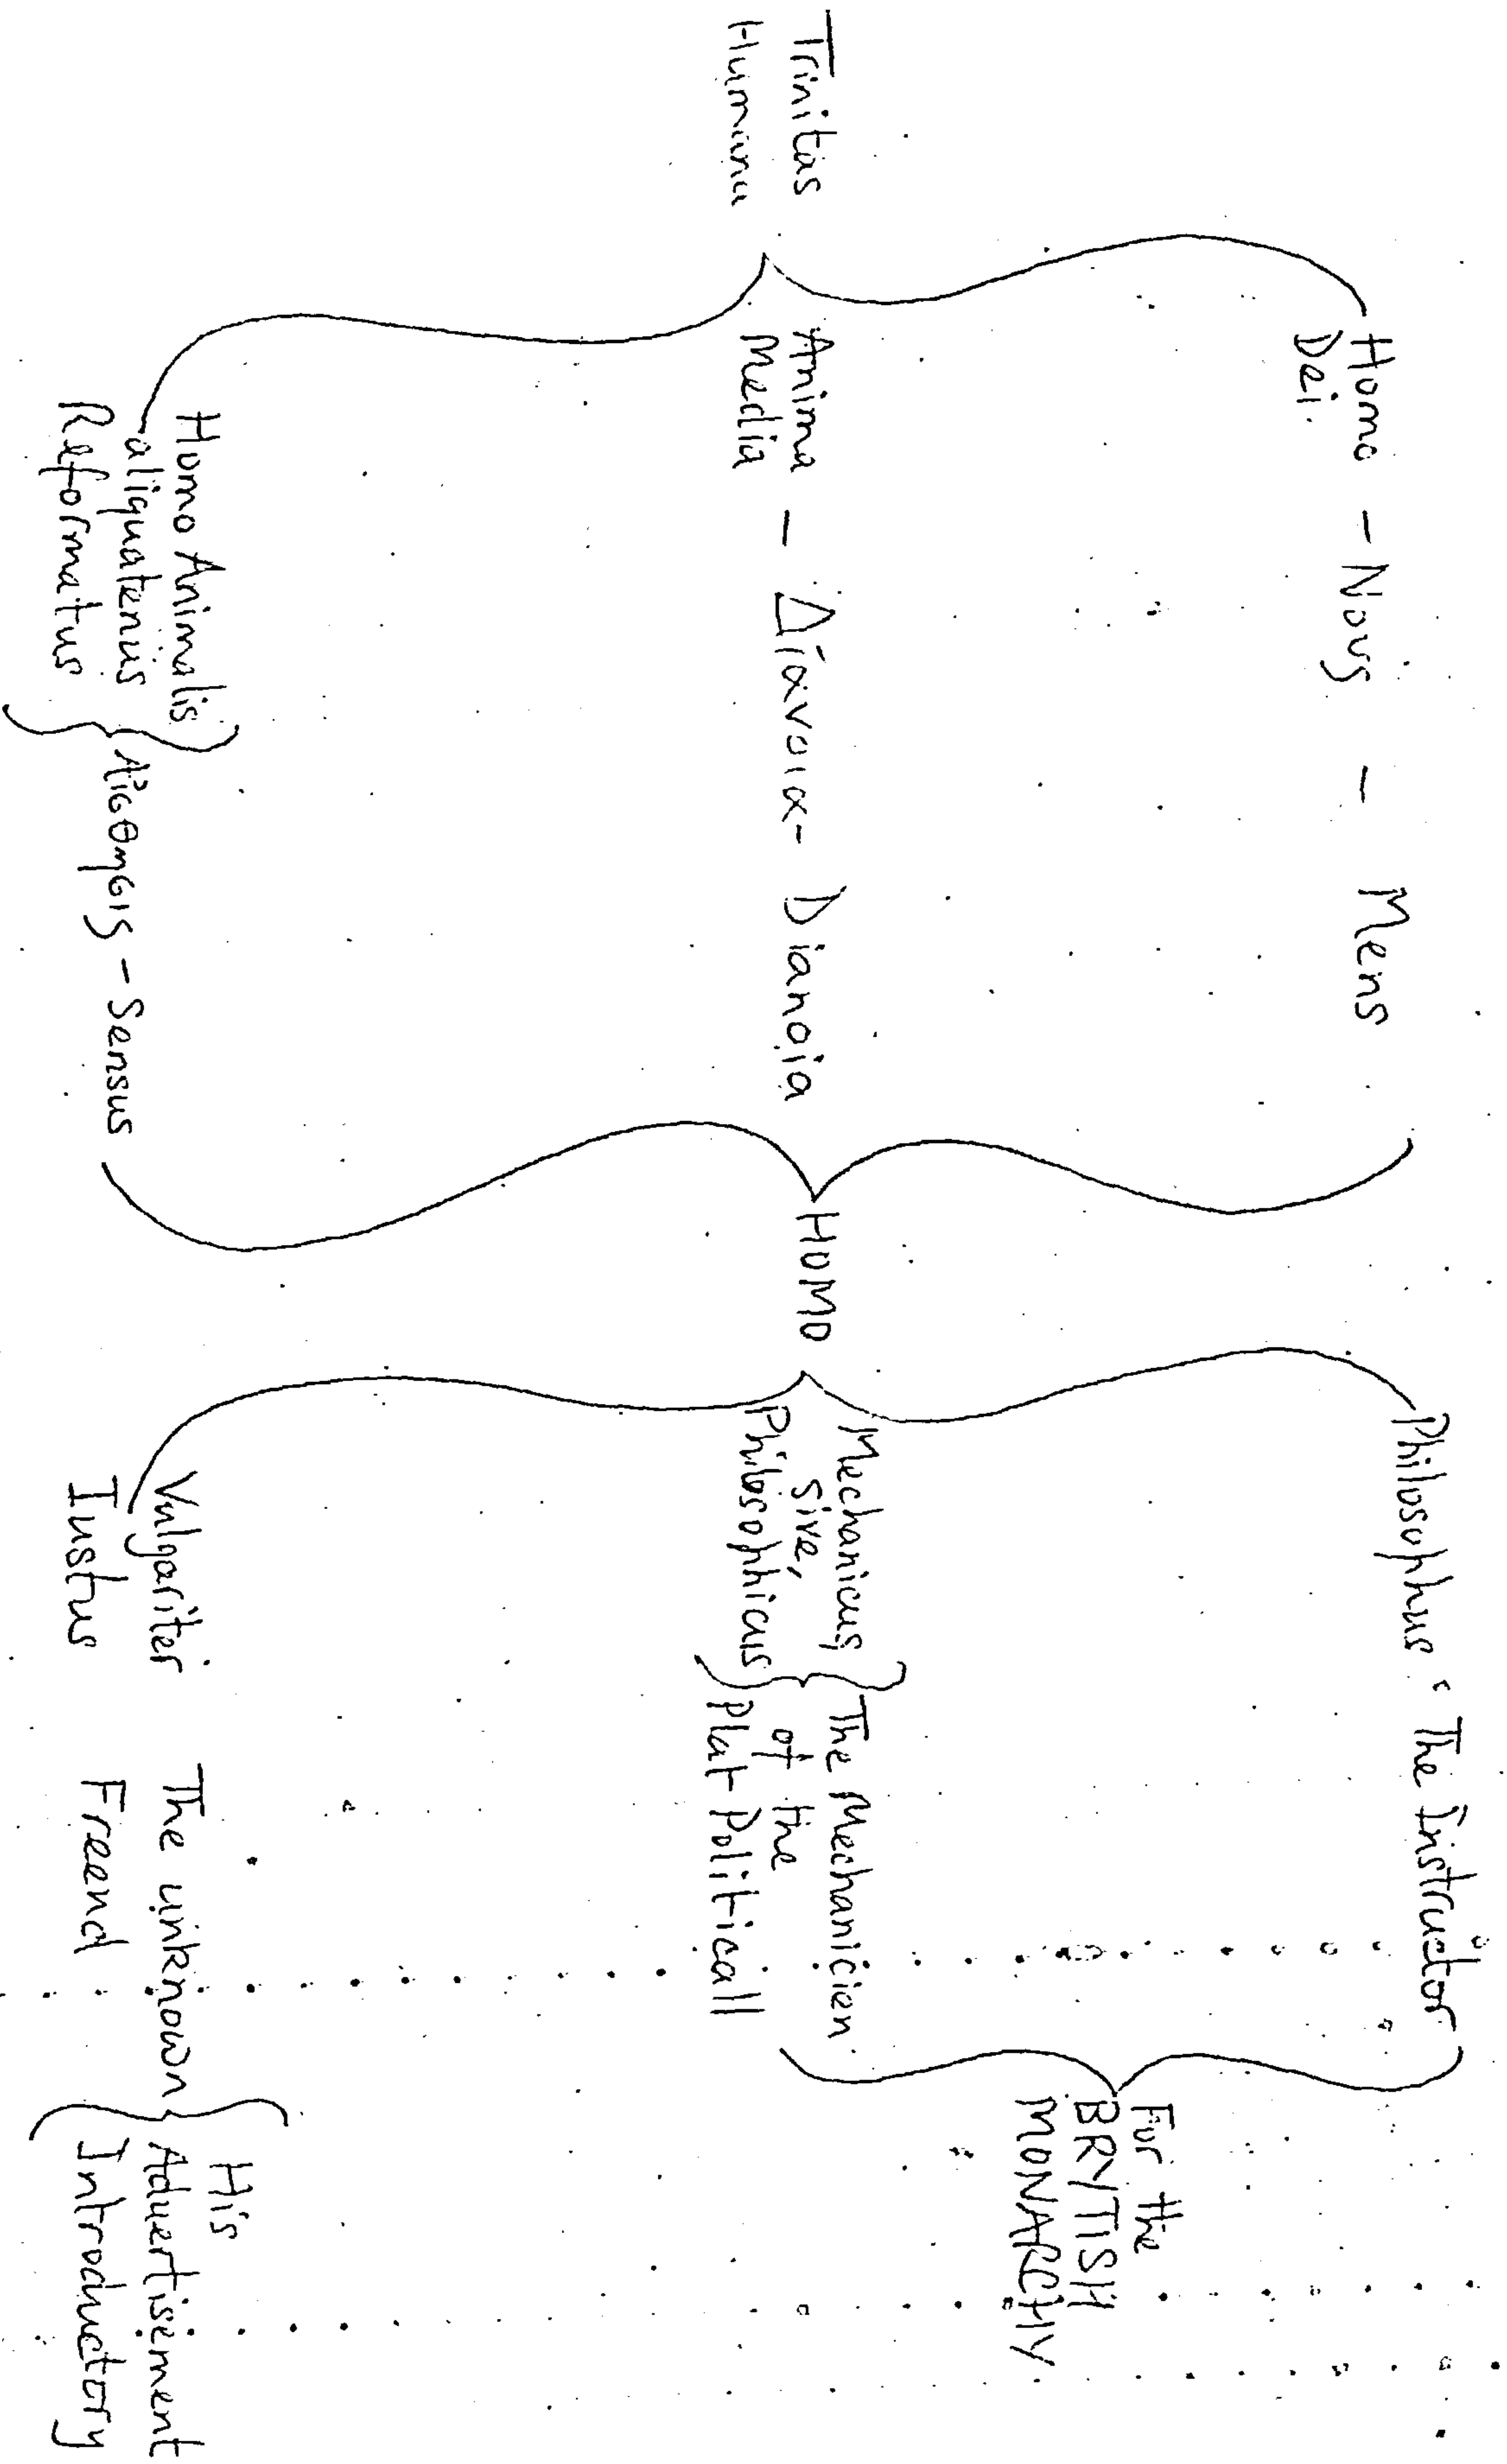 Trinitas
Humana
Homo - Νους - Mens
Dei.
Anima - Διάνοια - Dianoia
Media
Homo Animalis
aliquatenus
Reformatus
Αἰσθησις - Sensus
HOMO
Philosophus : The Instructor
Mechanicus,
sive,
Philosophicus
The Mechanicien
of the
Plat Politicall
For the
BRYTISH
MONARCHY.
Vulgariter
Iustus
The unknown
Freend
His
Aduertisement
Introductory